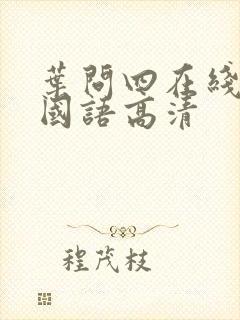 葉問四在綫
國語高清
程茂枝